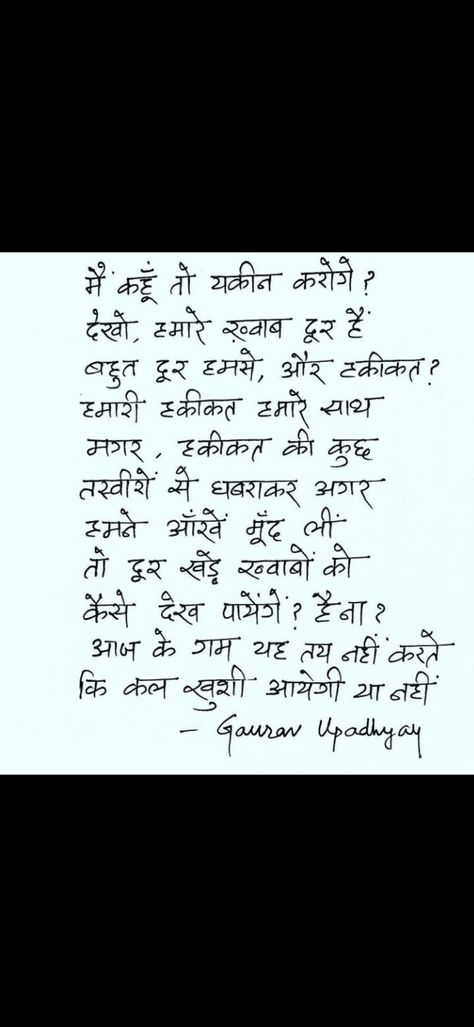 मैं कहूँ तो यकीन करोगे?
देखो, हमारे ख़्वाब दूर हैं
बहुत दूर हमसे, और हकीकत?
हमारी हकीकत हमारे साथ
मगर, हकीकत की कुछ
तस्वीरों से घबराकर अगर
हमने आँखें मूँद लीं
तो दूर खड़े ख्वाबों को
कैसे देख पायेंगें? है ना?
आज के गम यह तय नहीं करते
कि कल खुशी आयेगी या नहीं
- Gaurav Upadhyay